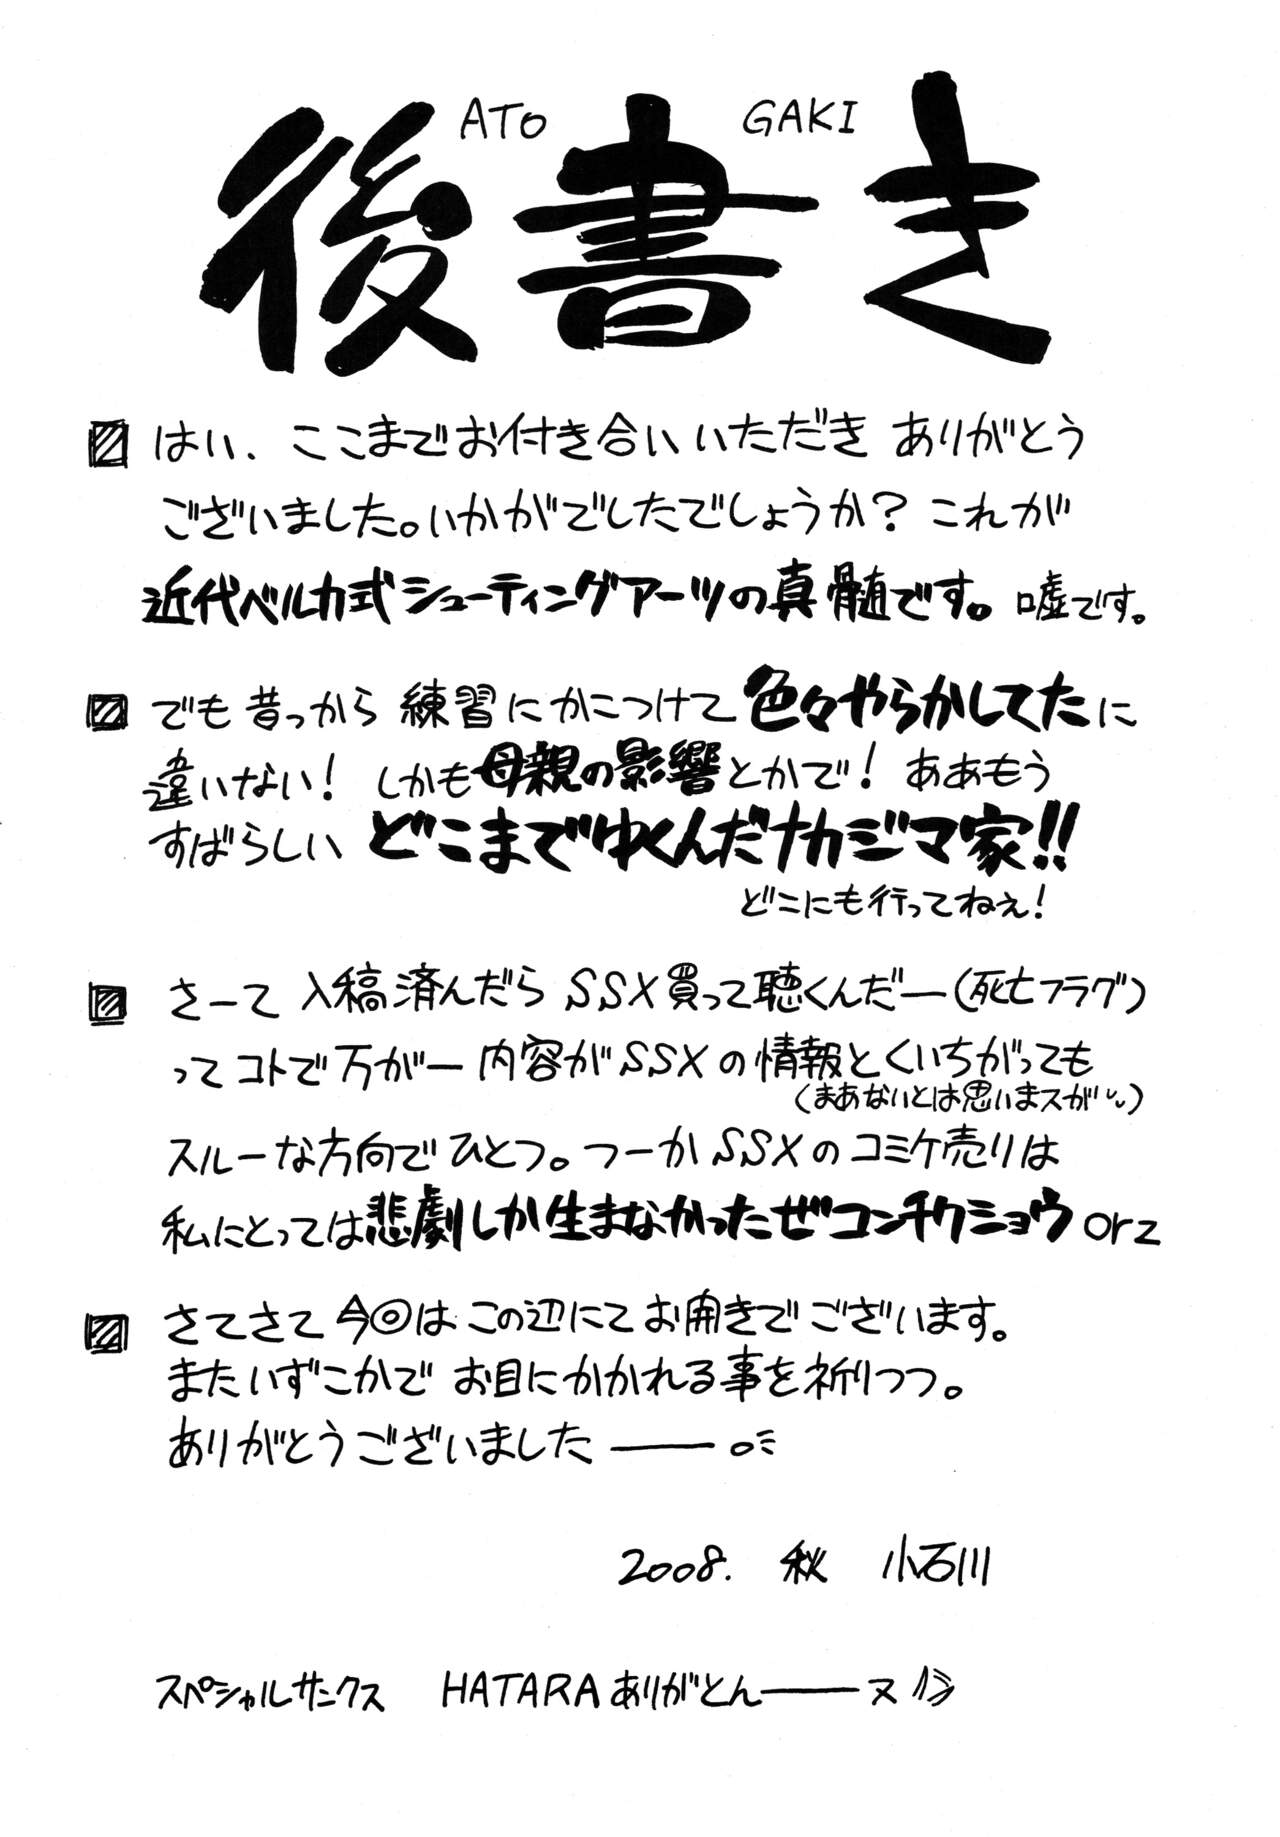 ATO GAKI
後書き
はい、ここまでお付き合いいただき ありがとう
ございました。いかがでしたでしょうか? これが
近代ベルカ式シューティングアーツの真髄です。嘘です。
でも昔っから練習にかこつけて色々やらかしてたに
違いない! しかも母親の影響とかで! ああもう
すばらしい どこまでゆくんだナカジマ家!!
どこにも行ってねぇ!
さーて 入稿済んだら SSX買って聴くんだー(死亡フラグ)
ってコトで万が一内容がSSXの情報とくいちがっても
(まあないとは思いまスが)
スルーな方向でひとつ。つーかSSXのコミケ売りは
私にとっては悲劇しか生まなかったぜコンチクショウ orz
さてさて今回はこの辺にてお開きでございます。
またいずこかで お目にかかれる事を祈りつつ。
ありがとうございました――o
2008. 秋 小石川
スペシャルサンクス HATARAありがとん――ヌ